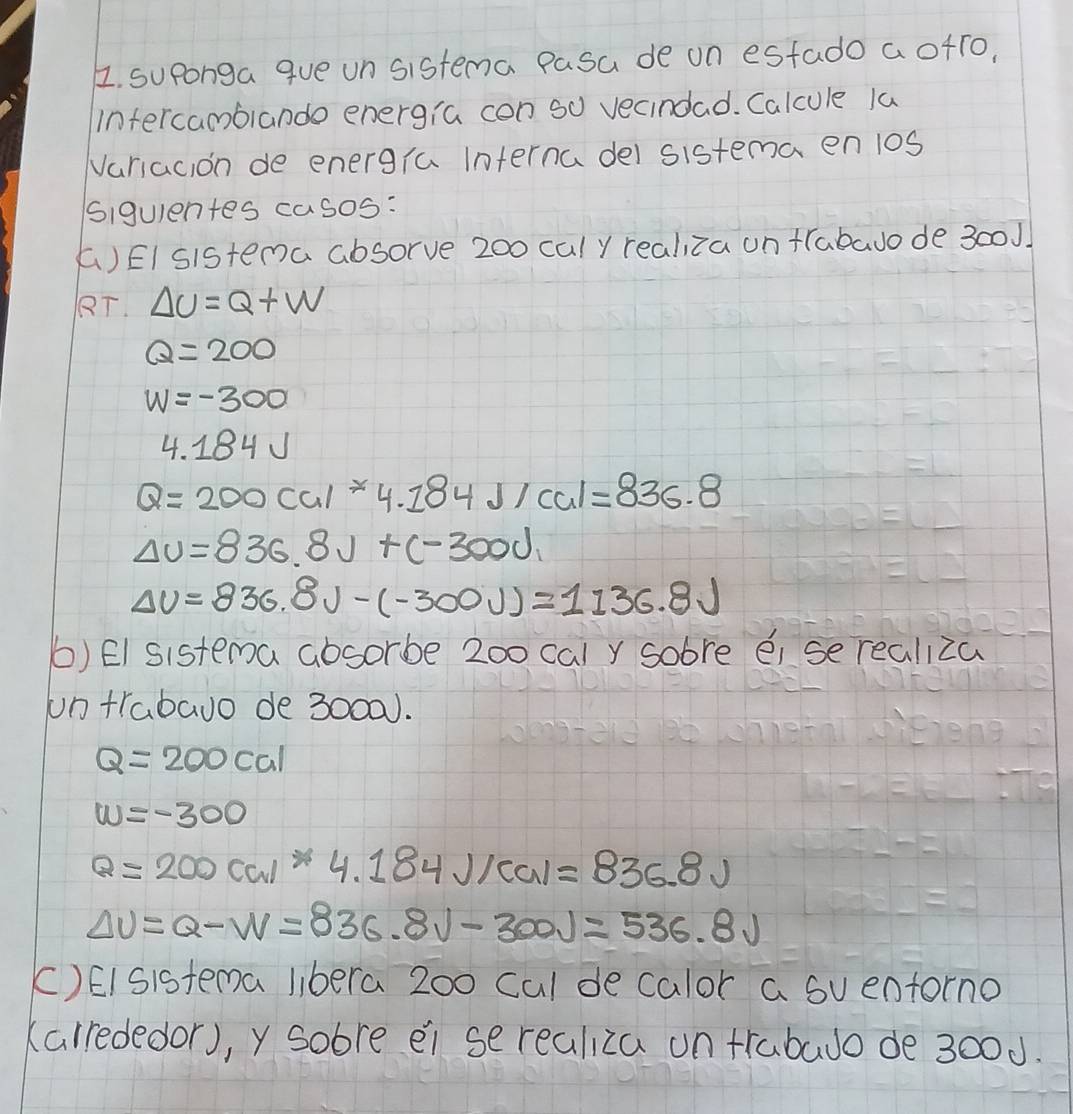 1. suponga que un sistema pasa de un estado a otro,
intercambiando energía con su vecindad. Calcule la
variación de energía interna del sistema en los
siguientes casos:
a) El sistema absorve 200 cal y realiza un trabajo de 300J.
RT. ΔU = Q + W
Q = 200
W = -300
4.184 J
Q = 200 cal * 4.184 J/cal = 836.8
ΔU = 836.8J + (-300J.
ΔU = 836.8J - (-300J) = 1136.8J
b) El sistema absorbe 200 cal y sobre él se realiza
un trabajo de 300J.
Q = 200 cal
W = -300
Q = 200 cal * 4.184 J/cal = 836.8J
ΔU = Q - W = 836.8J - 300J = 536.8J
C) El sistema libera 200 cal de calor a su entorno
(alrededor), y sobre él se realiza un trabajo de 300J.